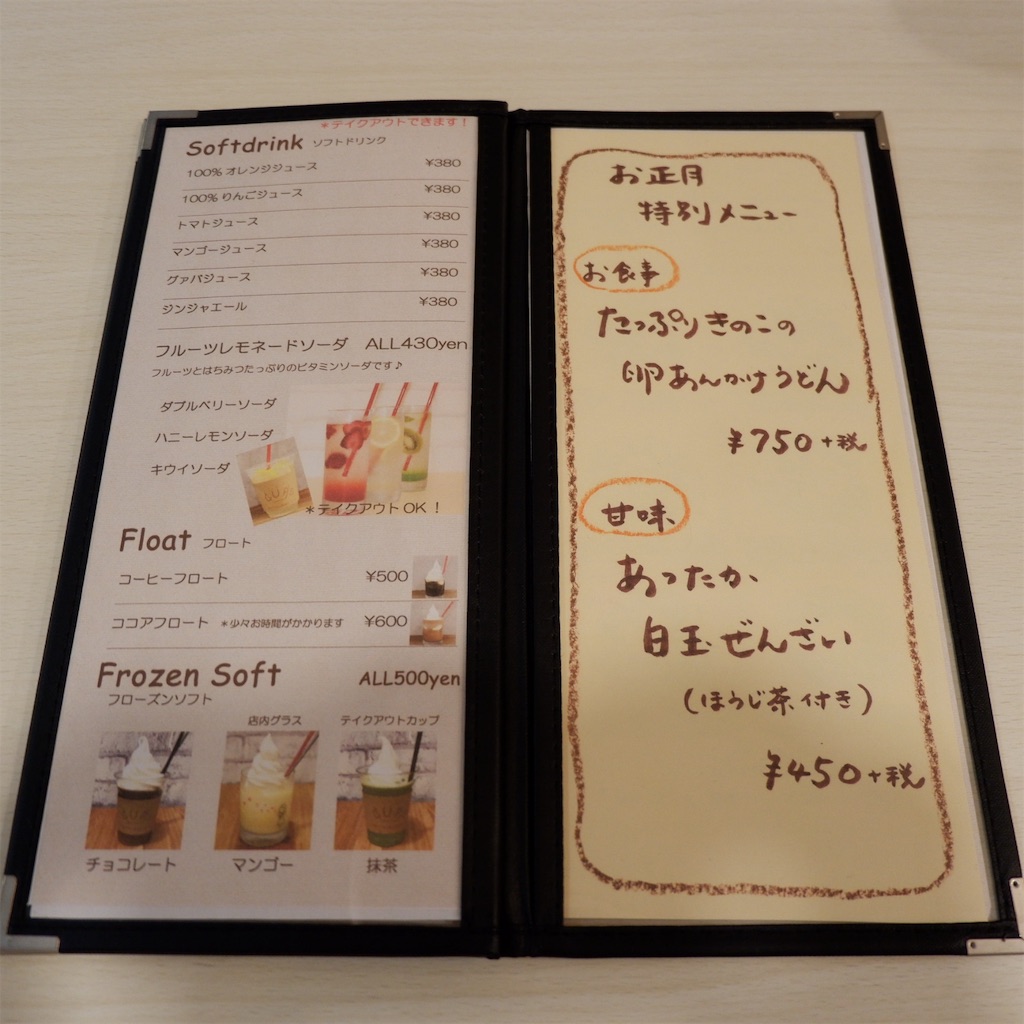 *テイクアウトできます！
Softdrink ソフトドリンク
100% オレンジジュース ¥380
100% りんごジュース ¥380
トマトジュース ¥380
マンゴージュース ¥380
グァバジュース ¥380
ジンジャエール ¥380
フルーツレモネードソーダ ALL430yen
フルーツとはちみつたっぷりのビタミンソーダです♪
ダブルベリーソーダ
ハニーレモンソーダ
キウイソーダ
*テイクアウトOK！
Float フロート
コーヒーフロート ¥500
ココアフロート *少々お時間がかかります ¥600
Frozen Soft ALL500yen
フローズンソフト
店内グラス テイクアウトカップ
チョコレート マンゴー 抹茶
お正月
特別メニュー
お食事
たっぷりきのこの
卵あんかけうどん
¥750+税
甘味
あったか
白玉ぜんざい
(ほうじ茶付き)
¥450+税